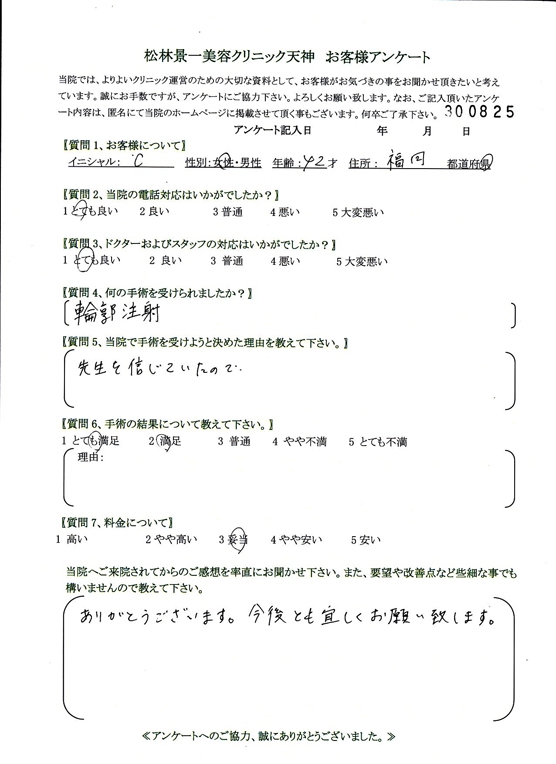 松林景一美容クリニック天神　お客様アンケート
当院では、よりよいクリニック運営のための大切な資料として、お客様がお気づきの事をお聞かせ頂きたいと考え
ています。誠にお手数ですが、アンケートにご協力下さい。よろしくお願い致します。なお、ご記入頂いたアンケ
ート内容は、匿名にて当院のホームページに掲載させて頂く事もございます。何卒ご了承下さい。 300825
アンケート記入日　　　年　　　月　　　日
〖質問1、お客様について〗
イニシャル： C　性別：女性・男性　年齢：42才　住所： 福岡　都道府県
〖質問2、当院の電話対応はいかがでしたか？〗
1 とても良い　2 良い　3 普通　4 悪い　5 大変悪い
〖質問3、ドクターおよびスタッフの対応はいかがでしたか？〗
1 とても良い　2 良い　3 普通　4 悪い　5 大変悪い
〖質問4、何の手術を受けられましたか？〗
輪郭注射
〖質問5、当院で手術を受けようと決めた理由を教えて下さい。〗
先生を信じていたので。
〖質問6、手術の結果について教えて下さい。〗
1 とても満足　2 満足　3 普通　4 やや不満　5 とても不満
理由：
〖質問7、料金について〗
1 高い　2 やや高い　3 妥当　4 やや安い　5 安い
当院へご来院されてからのご感想を率直にお聞かせ下さい。また、要望や改善点など些細な事でも
構いませんので教えて下さい。
ありがとうございます。今後とも宜しくお願い致します。
≪アンケートへのご協力、誠にありがとうございました。≫